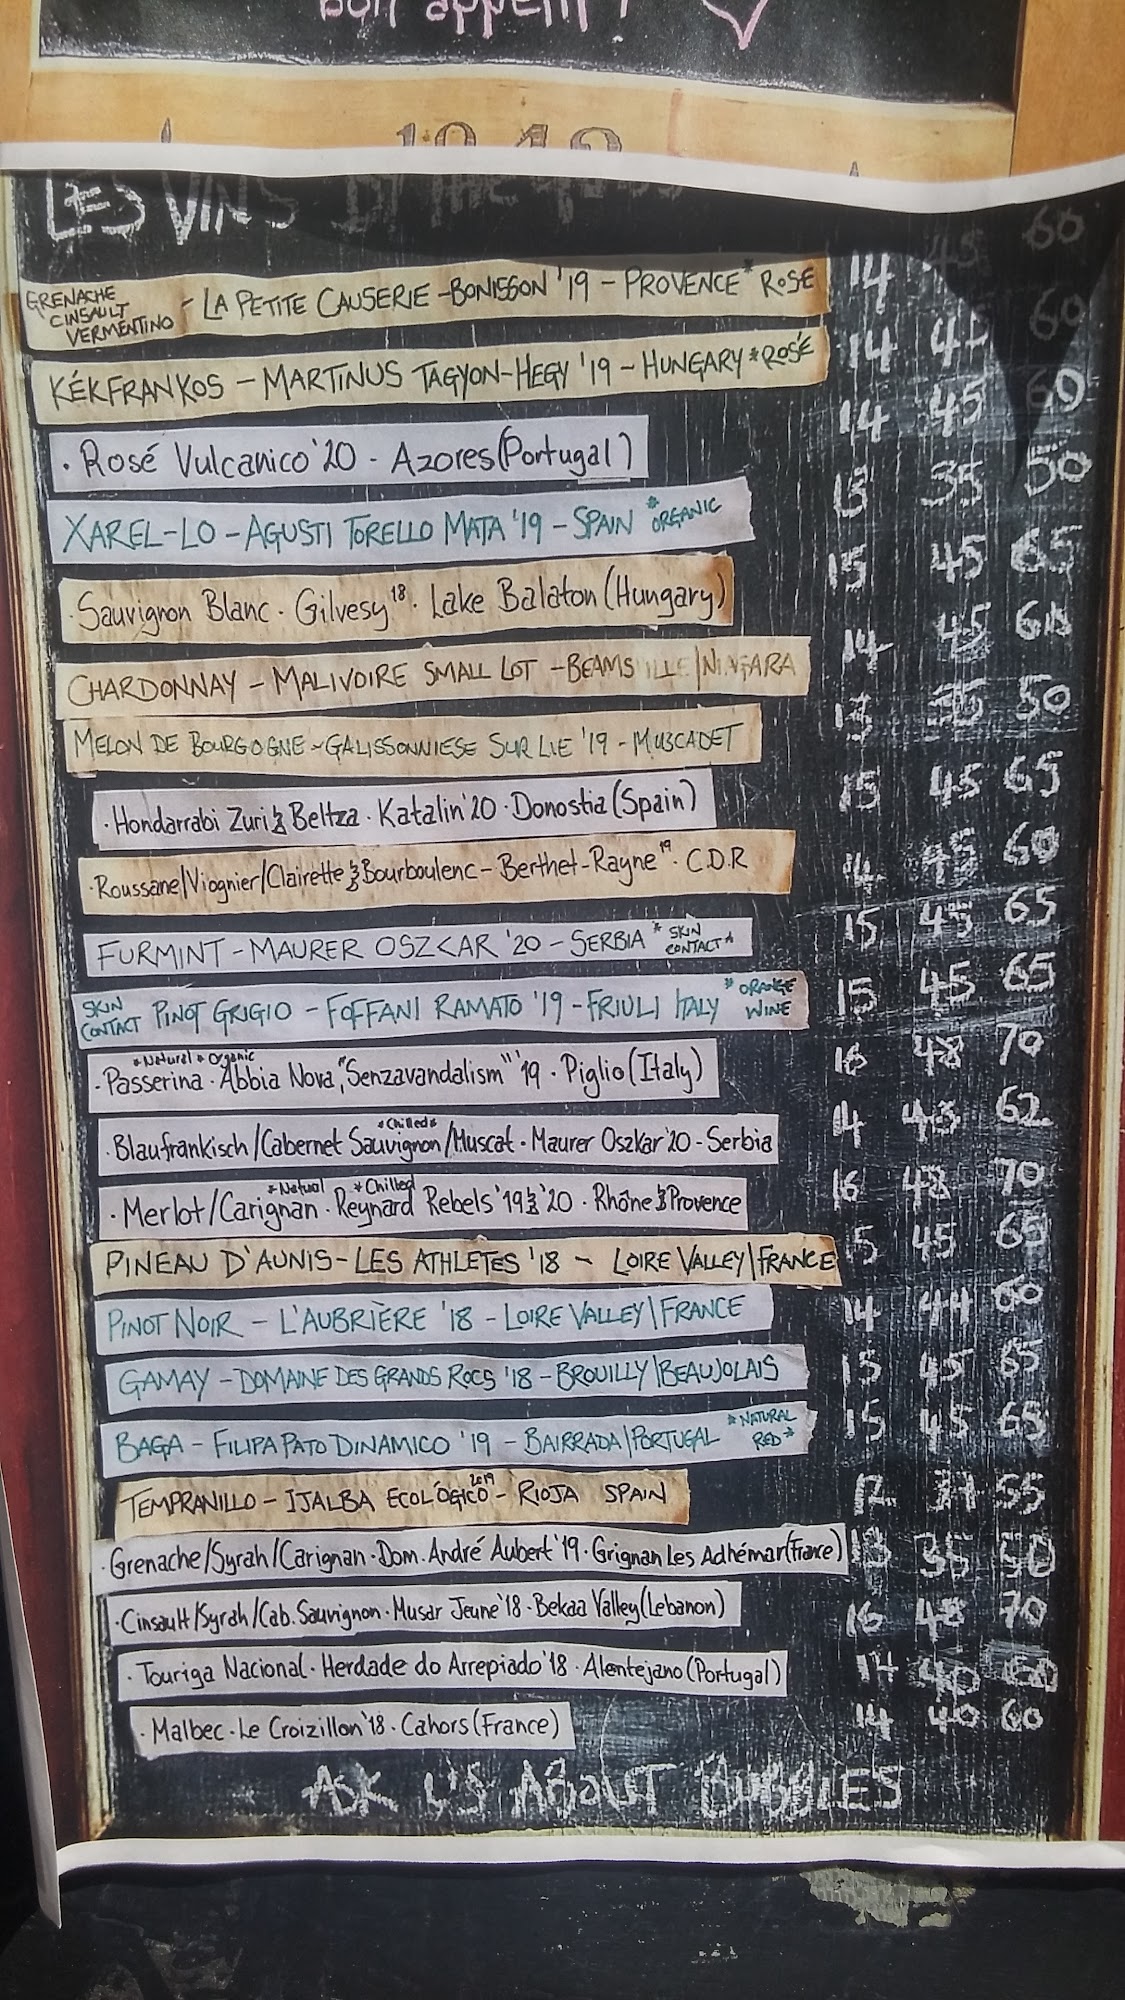 bon appétit !
1842
LES VINS BY THE GLASS
GRENACHE CINSAULT VERMENTINO - LA PETITE CAUSERIE - BONISSON '19 - PROVENCE * ROSÉ 14 45 60
KÉKFRANKOS - MARTINUS TAGYON-HEGY '19 - HUNGARY * ROSÉ 14 45 60
· Rosé Vulcanico '20 · Azores (Portugal) 14 45 60
XAREL-LO - AGUSTI TORELLO MATA '19 - SPAIN * ORGANIC 13 35 50
· Sauvignon Blanc · Gilvesy '18 · Lake Balaton (Hungary) 15 45 65
CHARDONNAY - MALIVOIRE SMALL LOT - BEAMSVILLE | NIAGARA 14 45 60
MELON DE BOURGOGNE ~ GALISSONNIESE SUR LIE '19 - MUSCADET 13 35 50
· Hondarrabi Zuri & Beltza · Katalin '20 · Donostia (Spain) 15 45 65
· Roussane/Viognier/Clairette & Bourboulenc - Berthet-Rayne '19 · C.D.R 14 45 60
FURMINT - MAURER OSZKAR '20 - SERBIA * SKIN CONTACT * 15 45 65
SKIN CONTACT PINOT GRIGIO - FOFFANI RAMATO '19 - FRIULI ITALY * ORANGE WINE 15 45 65
* Natural * Organic
· Passerina · Abbia Nova, "Senzavandalism" '19 · Piglio (Italy) 16 48 70
* Chilled *
· Blaufrankisch/Cabernet Sauvignon/Muscat · Maurer Oszkar '20 - Serbia 14 43 62
* Natural * Chilled
· Merlot/Carignan · Reynard Rebels '19 & '20 · Rhône & Provence 16 48 70
PINEAU D'AUNIS - LES ATHLETES '18 - LOIRE VALLEY | FRANCE 15 45 65
PINOT NOIR - L'AUBRIÈRE '18 - LOIRE VALLEY | FRANCE 14 44 60
GAMAY - DOMAINE DES GRANDS ROCS '18 - BROUILLY | BEAUJOLAIS 15 45 65
BAGA - FILIPA PATO DINAMICO '19 - BAIRRADA | PORTUGAL * NATURAL RED * 15 45 65
TEMPRANILLO - IJALBA ECOLÓGICO 2019 - RIOJA SPAIN 12 37 55
· Grenache/Syrah/Carignan · Dom. André Aubert '19 · Grignan Les Adhémar (France) 13 35 50
· Cinsault/Syrah/Cab. Sauvignon · Musar Jeune '18 · Bekaa Valley (Lebanon) 16 48 70
· Touriga Nacional · Herdade do Arrepiado '18 · Alentejano (Portugal) 14 40 60
· Malbec · Le Croizillon '18 · Cahors (France) 14 40 60
ASK US ABOUT BUBBLES